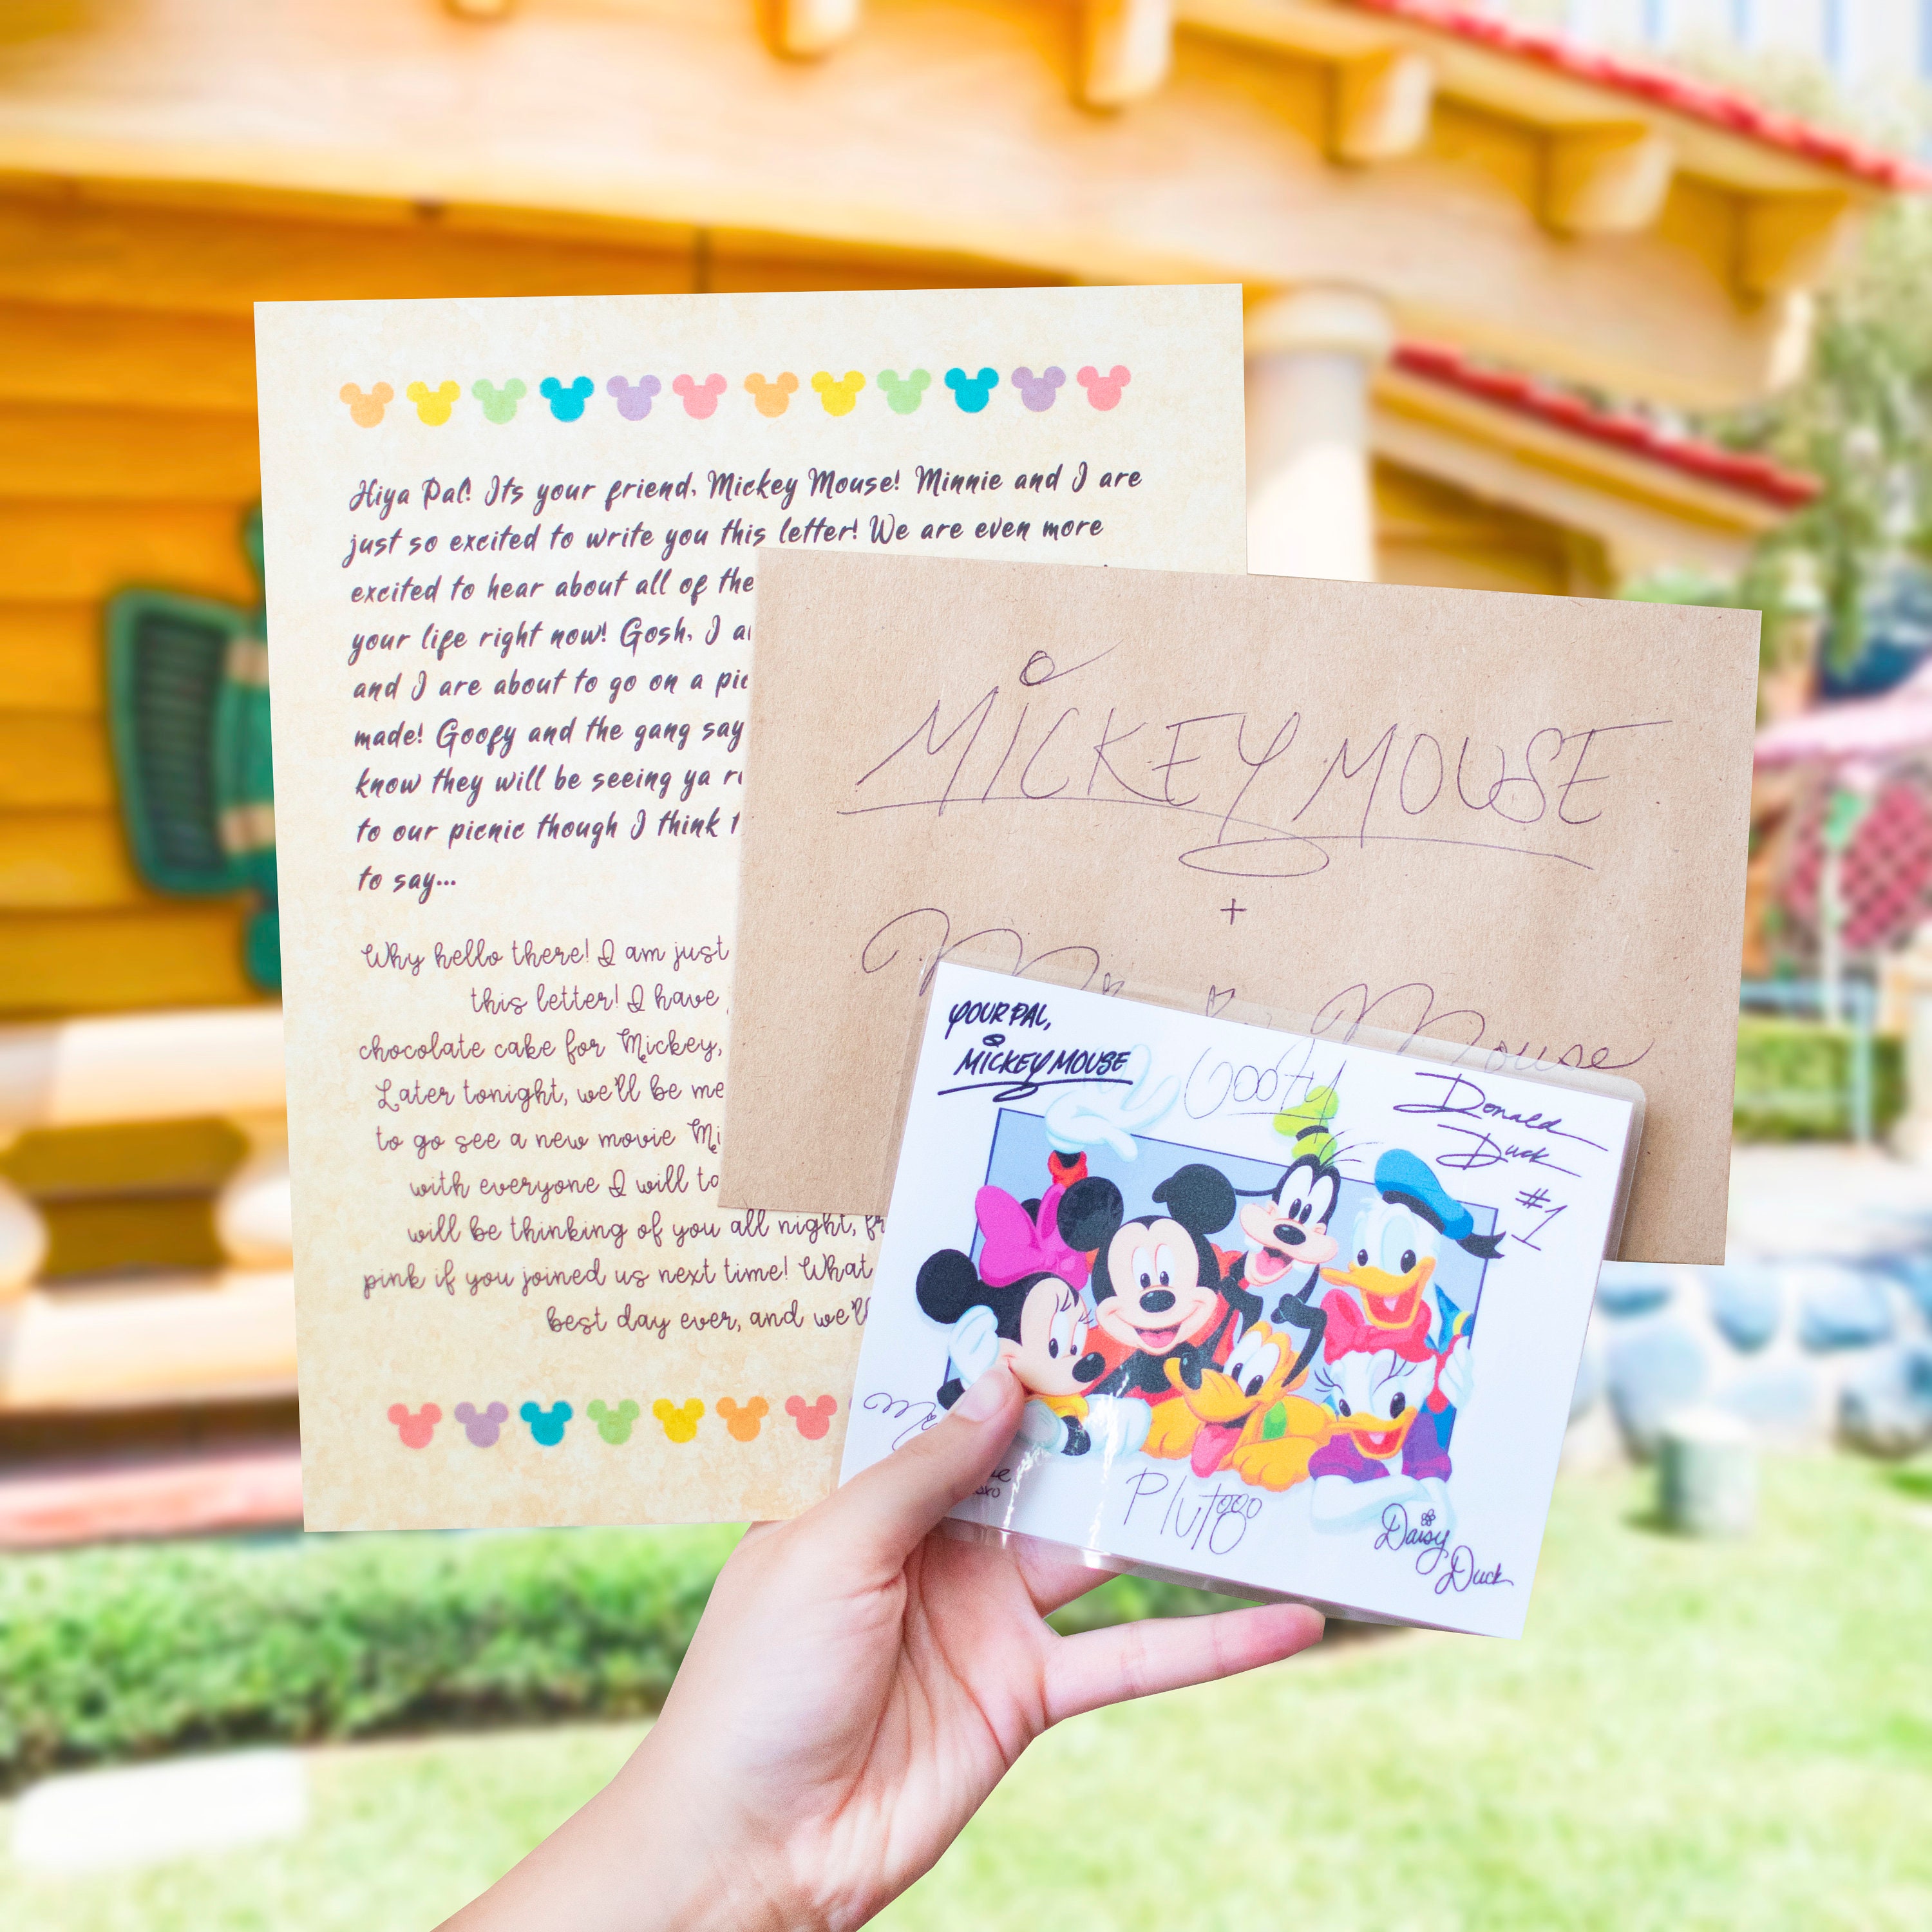 Hiya Pal! Its your friend, Mickey Mouse! Minnie and I are
just so excited to write you this letter! We are even more
excited to hear about all of the
your life right now! Gosh, I
and I are about to go on a
made! Goofy and the gang say
know they will be seeing ya
to our picnic though I think
to say...
Why hello there! I am just
this letter! I have
chocolate cake for Mickey,
Later tonight, we'll be
to go see a new movie
with everyone I will
will be thinking of you all night,
pink if you joined us next time! What
best day ever, and we'll
MICKEY MOUSE
+
Mouse
YOUR PAL,
MICKEY MOUSE
Goofy
Donald
Duck
#1
Pluto
Daisy
Duck